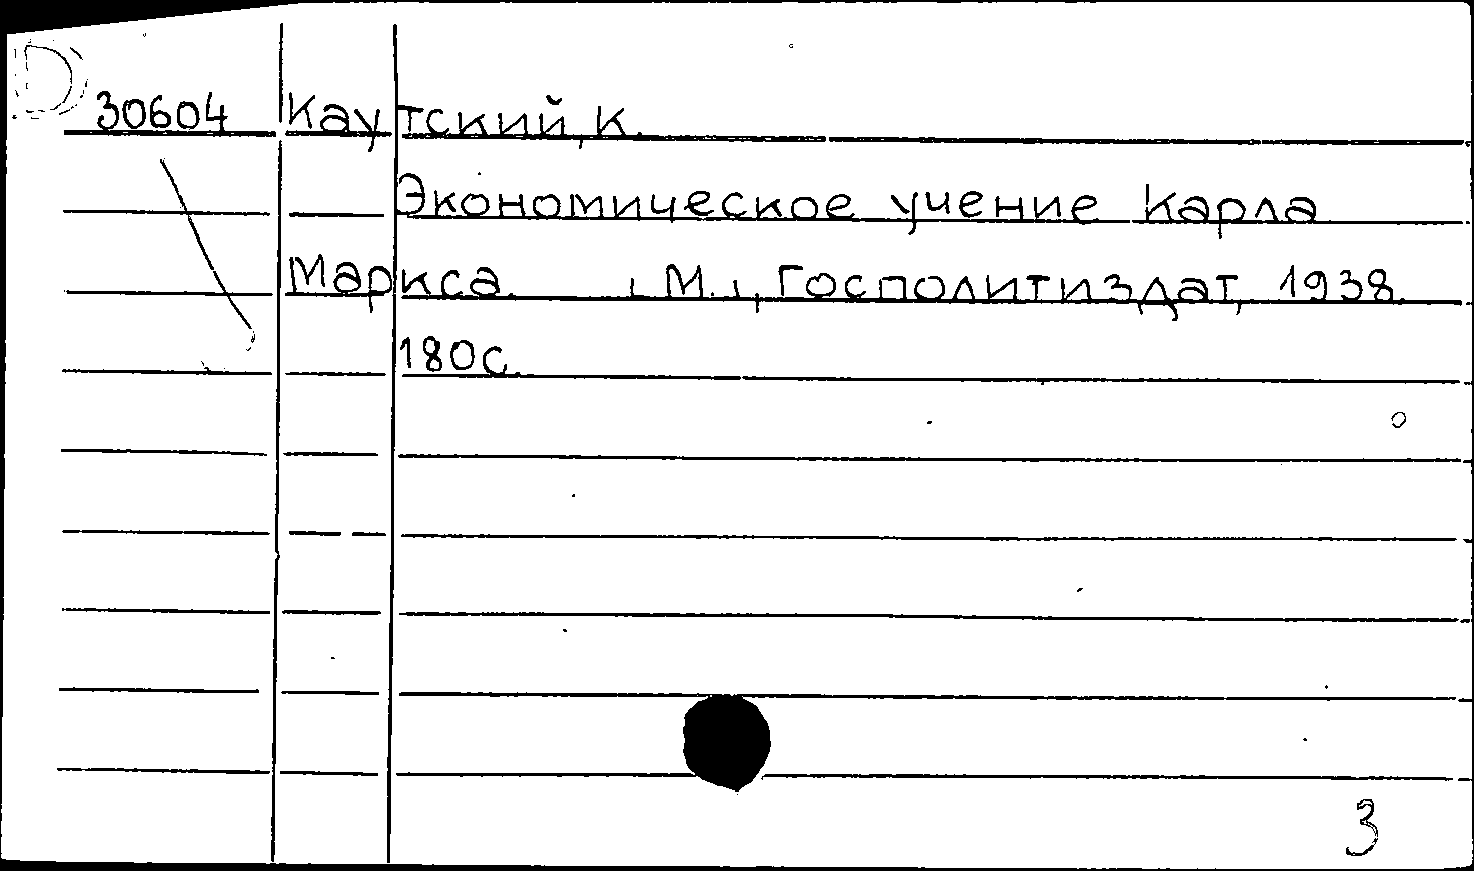 D
30604 Каутский, К.
Экономическое учение Карла
Маркса. [М.], Госполитиздат, 1938.
180 с.
3